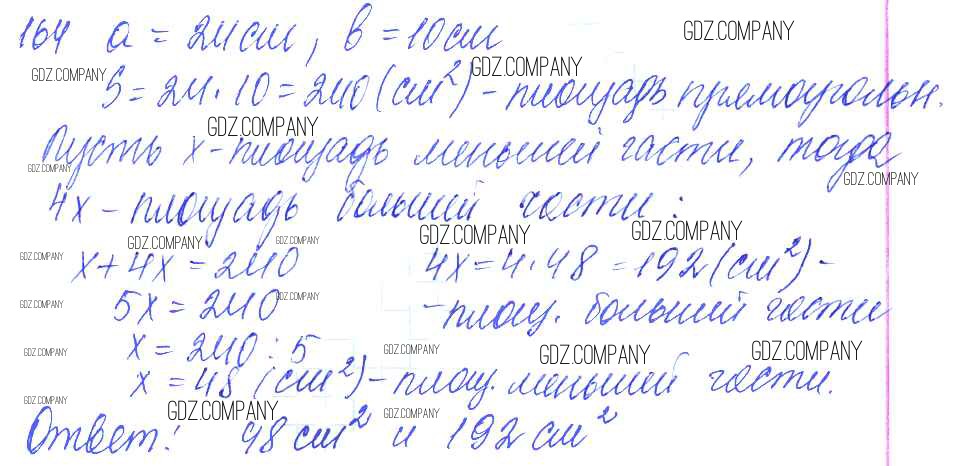 164 a = 24 см, b = 10 см GDZ.COMPANY
GDZ.COMPANY S = 24 · 10 = 240 (см²) - площадь прямоугольн. GDZ.COMPANY
GDZ.COMPANY
Пусть x - площадь меньшей части, тогда
GDZ.COMPANY GDZ.COMPANY
4x - площадь большей части:
GDZ.COMPANY GDZ.COMPANY GDZ.COMPANY GDZ.COMPANY
GDZ.COMPANY x + 4x = 240 4x = 4 · 48 = 192 (см²) -
GDZ.COMPANY 5x = 240 GDZ.COMPANY - площ. большей части
GDZ.COMPANY x = 240 : 5 GDZ.COMPANY GDZ.COMPANY GDZ.COMPANY
x = 48 (см²) - площ. меньшей части.
GDZ.COMPANY GDZ.COMPANY GDZ.COMPANY
Ответ: 48 см² и 192 см²